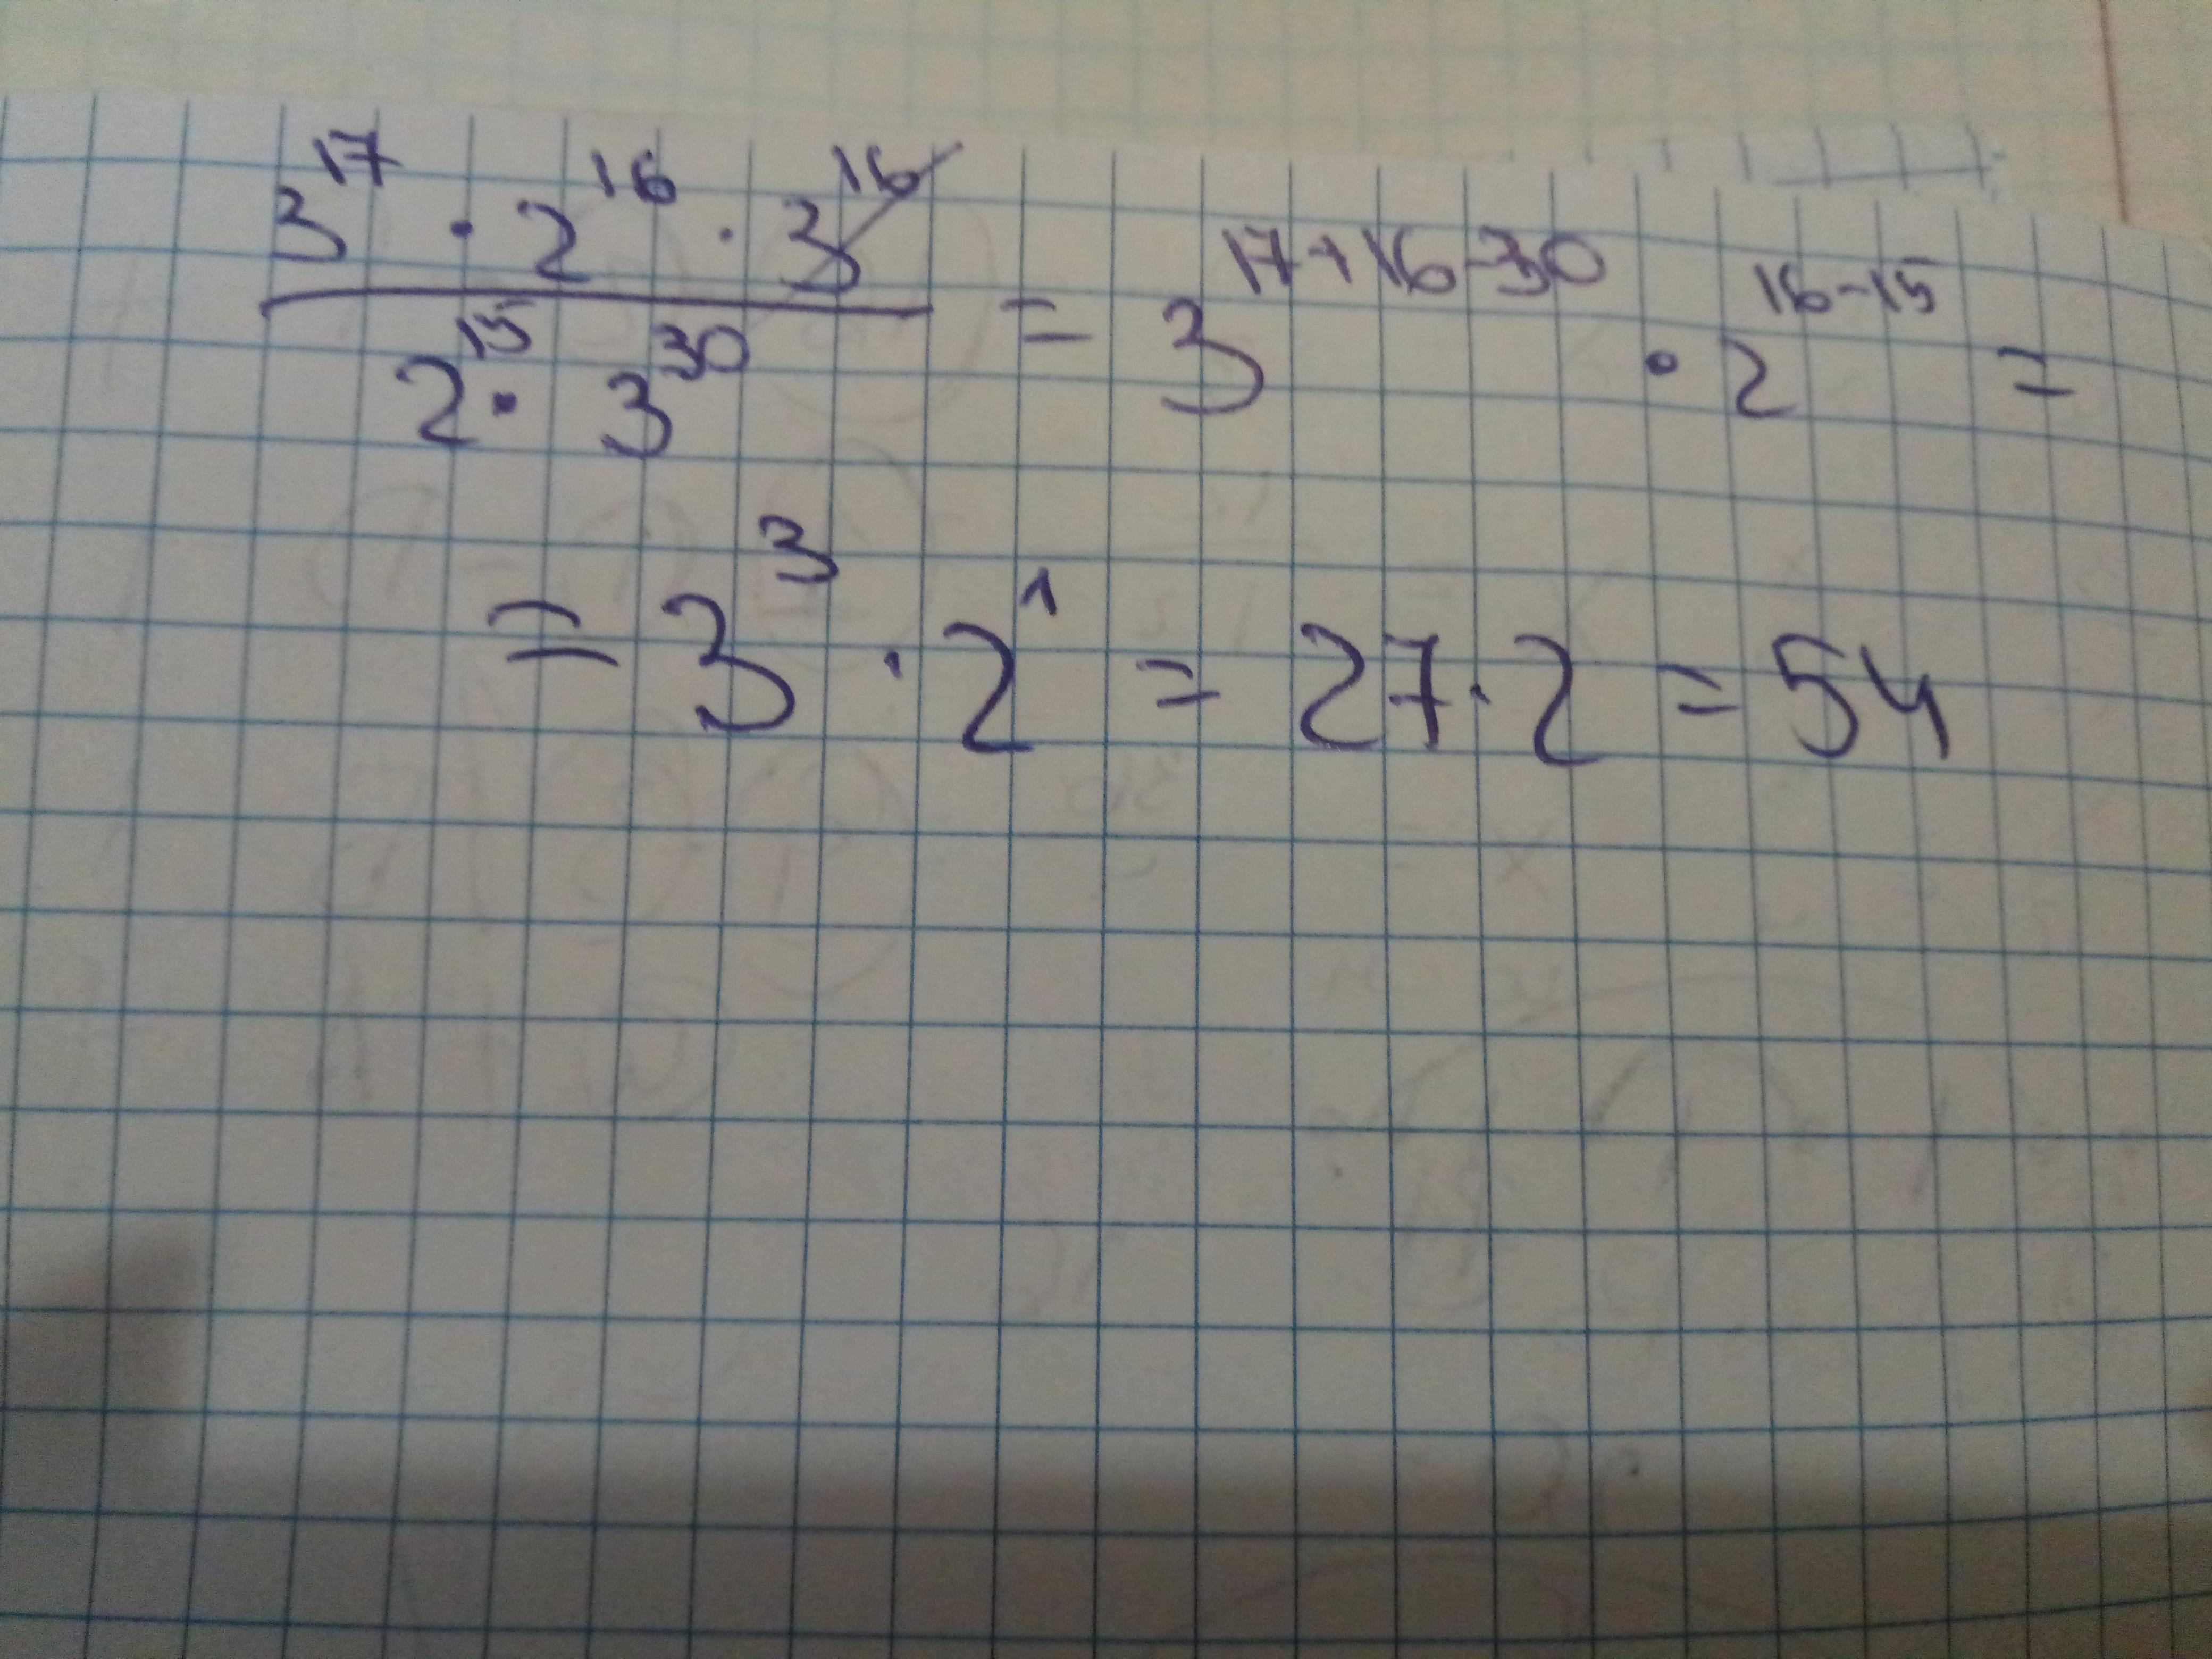 3^17 · 2^16 · 3^16 / 2^15 · 3^30 = 3^17+16-30 · 2^16-15 =
= 3^3 · 2^1 = 27 · 2 = 54